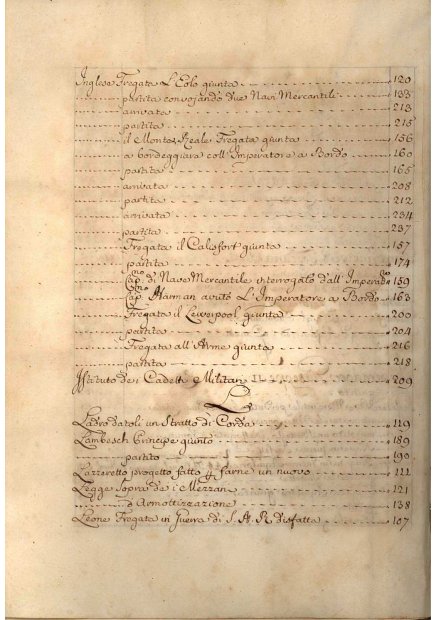 Inglese Fregata L'Eolo giunta 120
partita convojando due Navi Mercantili 133
arrivata 213
partita 215
il Montes Reale Fregata giunta 156
a bordeggiare coll'Imperatore a Bordo 160
partita 165
arrivata 208
partita 212
arrivata 234
partita 237
Fregata il Calisfort giunta 157
partita 174
Cap. di Nave Mercantile interrogato dall'Imperad.re 159
Cap.no Harman avuto L'Imperatore a Bordo 163
Fregata il Leverpool giunta 200
partita 204
Fregata all'Arme giunta 216
partita 218
Istituto dei Cadetti Militari 209
L
Ladro datoli un Stratto di Corda 119
Lambesch Principe giunto 189
partito 190
Lazzeretto progetto fatto p farne un nuovo 111
Legge Sopra de i Mezzan 121
d'Amottizzazione 138
Leone Fregata in Guerra di S. A. R. disfatta 107